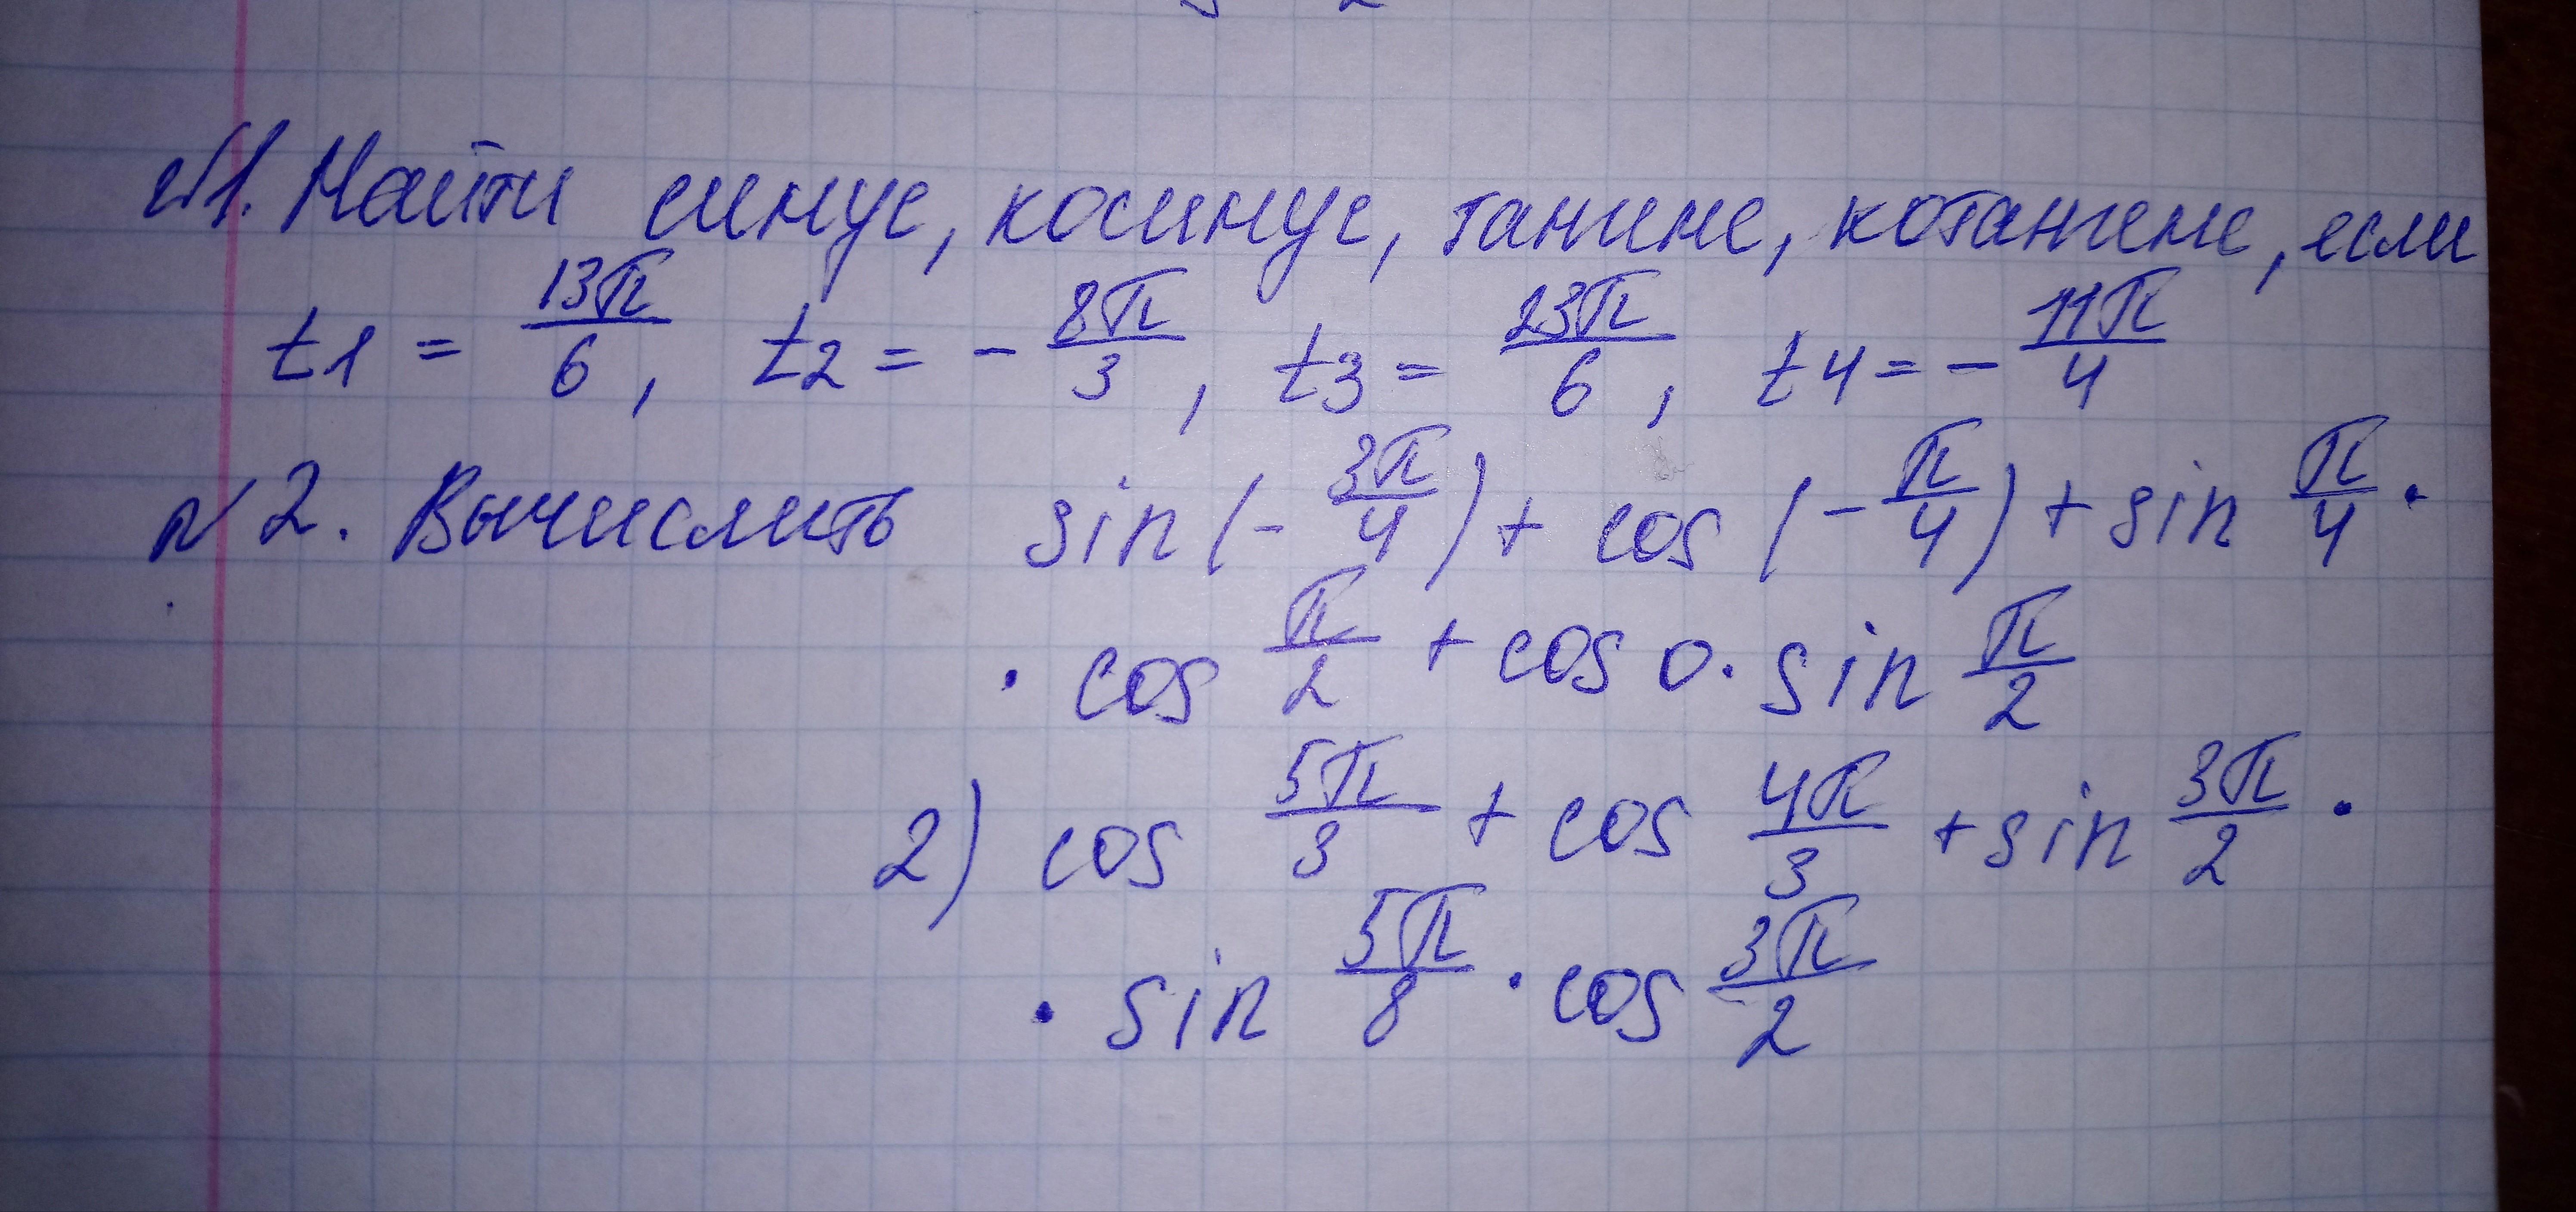 №1. Найти синус, косинус, тангенс, котангенс, если
t1 = 13π/6, t2 = - 8π/3, t3 = 23π/6, t4 = - 11π/4
№2. Вычислить sin(- 3π/4) + cos(- π/4) + sin π/4 ·
· cos π/2 + cos 0 · sin π/2
2) cos 5π/3 + cos 4π/3 + sin 3π/2 ·
· sin 5π/8 · cos 3π/2